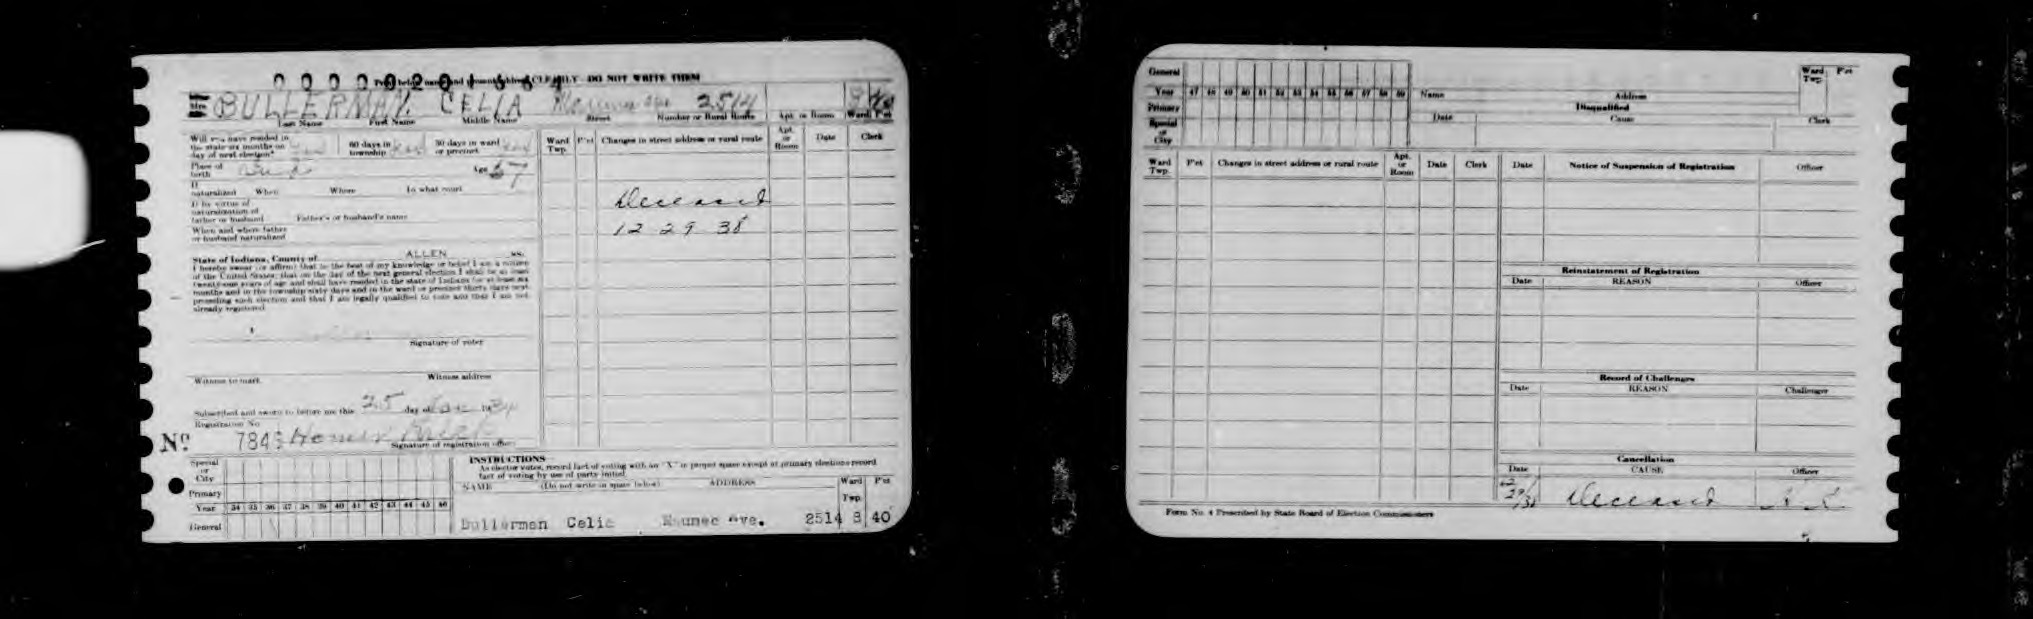 CLEARLY DO NOT WRITE THEM
Mrs. BULLERMAN, CELIA Maumee Ave 2514 8 40
Last Name First Name Middle Name Street Number or Rural Route Apt. or Room Ward P'ct
Will you have resided in the state six months on day of next election? Yes 60 days in township Yes 30 days in ward or precinct Yes
Place of birth Age 57
If naturalized When Where In what court
If by virtue of naturalization of father or husband Father's or husband's name
When and where father or husband naturalized
State of Indiana, County of ALLEN ss.
I hereby swear (or affirm) that to the best of my knowledge or belief I am a citizen
of the United States; that on the day of the next general election I shall be at least
twenty-one years of age and shall have resided in the state of Indiana for at least six
months and in the township sixty days and in the ward or precinct thirty days next
preceding such election and that I am legally qualified to vote and that I am not
already registered.
Signature of voter
Witness to mark Witness address
Subscribed and sworn to before me this 25 day of 1934
Registration No.
No. 784 Homer
Signature of registration officer
Ward Twp. P'ct Changes in street address or rural route Apt. or Room Date Clerk
Deceased
12 29 38
Special or City
Primary
Year 34 35 36 37 38 39 40 41 42 43 44 45 46
General
INSTRUCTIONS
As elector votes, record fact of voting with an "X" in proper space except at primary elections record
fact of voting by use of party initial.
NAME (Do not write in space below) ADDRESS Ward Twp. P'ct
Bullerman Celia Maumee Ave. 2514 8 40
General
Year 47 48 49 50 51 52 53 54 55 56 57 58 59
Primary
Special or City
Name Address Ward Twp. P'ct
Disqualified
Date Cause Clerk
Ward Twp. P'ct Changes in street address or rural route Apt. or Room Date Clerk
Date Notice of Suspension of Registration Officer
Reinstatement of Registration
Date REASON Officer
Record of Challenges
Date REASON Challenger
Cancellation
Date CAUSE Officer
Deceased
Form No. 4 Prescribed by State Board of Election Commissioners